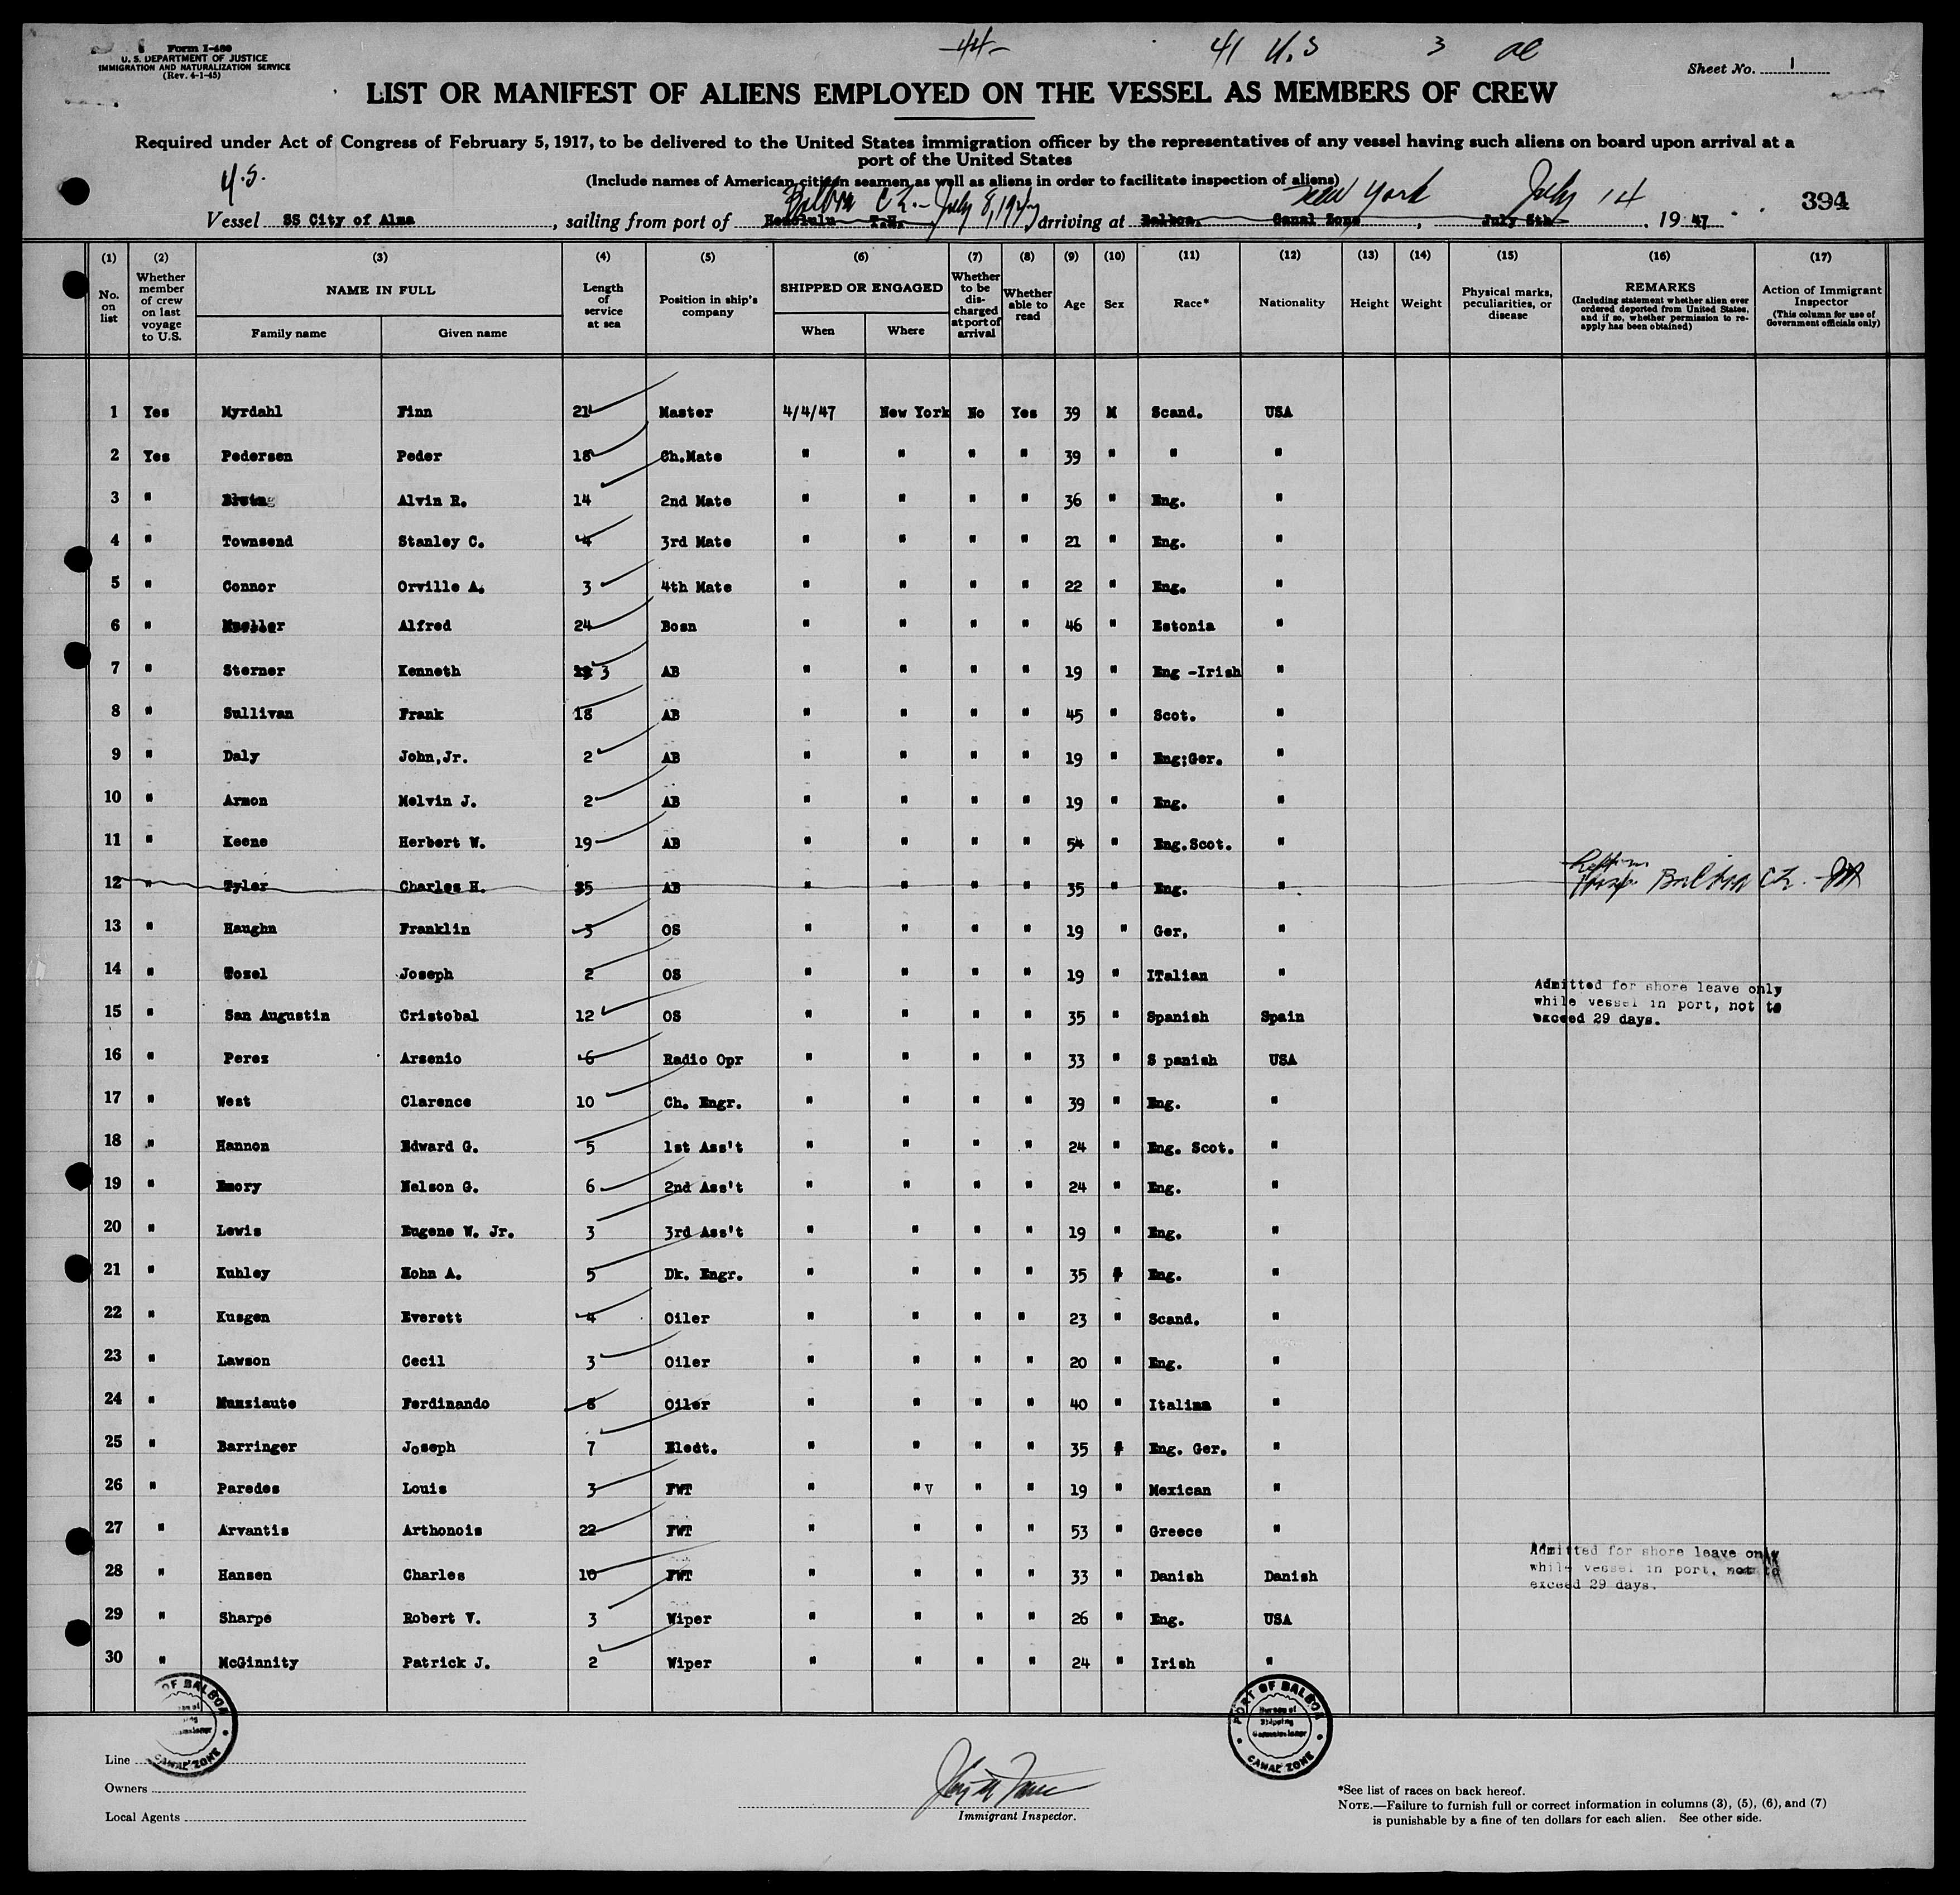 Form I-480
U. S. DEPARTMENT OF JUSTICE
IMMIGRATION AND NATURALIZATION SERVICE
(Rev. 4-1-45)
44 41 U.S 3
Sheet No. 1
LIST OR MANIFEST OF ALIENS EMPLOYED ON THE VESSEL AS MEMBERS OF CREW
Required under Act of Congress of February 5, 1917, to be delivered to the United States immigration officer by the representatives of any vessel having such aliens on board upon arrival at a
port of the United States
U.S.
(Include names of American citizen seamen as well as aliens in order to facilitate inspection of aliens)
Balboa C Z.- July 8, 1947 New York July 14 394
Vessel SS City of Alma, sailing from port of Honolulu T.H., arriving at Balboa, Canal Zone, July 8th, 19 47
(1) (2) (3) (4) (5) (6) (7) (8) (9) (10) (11) (12) (13) (14) (15) (16) (17)
No. on list
Whether member of crew on last voyage to U.S.
NAME IN FULL
Family name Given name
Length of service at sea
Position in ship's company
SHIPPED OR ENGAGED
When Where
Whether to be discharged at port of arrival
Whether able to read
Age Sex Race* Nationality Height Weight
Physical marks, peculiarities, or disease
REMARKS
(Including statement whether alien ever ordered deported from United States, and if so, whether permission to re-apply has been obtained)
Action of Immigrant Inspector
(This column for use of Government officials only)
1 Yes Myrdahl Finn 21 Master 4/4/47 New York No Yes 39 M Scand. USA
2 Yes Pedersen Peder 18 Ch.Mate " " " " 39 " " "
3 " Alvin R. 14 2nd Mate " " " " 36 " Eng. "
4 " Townsend Stanley C. 4 3rd Mate " " " " 21 " Eng. "
5 " Connor Orville A. 3 4th Mate " " " " 22 " Eng. "
6 " Mueller Alfred 24 Bosn " " " " 46 " Estonia "
7 " Sterner Kenneth 3 AB " " " " 19 " Eng -Irish "
8 " Sullivan Frank 18 AB " " " " 45 " Scot. "
9 " Daly John,Jr. 2 AB " " " " 19 " Eng;Ger. "
10 " Armon Melvin J. 2 AB " " " " 19 " Eng. "
11 " Keene Herbert W. 19 AB " " " " 54 " Eng.Scot. "
12 " Tyler Charles H. 35 AB " " " " 35 " Eng. " Hosp. Balboa CZ.
13 " Haughn Franklin 3 OS " " " " 19 " Ger, "
14 " Tozel Joseph 2 OS " " " " 19 " ITalian "
15 " San Augustin Cristobal 12 OS " " " " 35 " Spanish Spain Admitted for shore leave only
while vessel in port, not to
exceed 29 days.
16 " Perez Arsenio 6 Radio Opr " " " " 33 " S panish USA
17 " West Clarence 10 Ch. Engr. " " " " 39 " Eng. "
18 " Hannon Edward G. 5 1st Ass't " " " " 24 " Eng. Scot. "
19 " Emory Nelson G. 6 2nd Ass't " " " " 24 " Eng. "
20 " Lewis Eugene W. Jr. 3 3rd Ass't " " " " 19 " Eng. "
21 " Kuhley Hohn A. 5 Dk. Engr. " " " " 35 " Eng. "
22 " Kusgen Everett 4 Oiler " " " " 23 " Scand. "
23 " Lawson Cecil 3 Oiler " " " " 20 " Eng. "
24 " Munziaute Ferdinando 8 Oiler " " " " 40 " Italian "
25 " Barringer Joseph 7 Eledt. " " " " 35 " Eng. Ger. "
26 " Paredes Louis 3 FWT " " V " " 19 " Mexican "
27 " Arvantis Arthonois 22 FWT " " " " 53 " Greece "
28 " Hansen Charles 10 FWT " " " " 33 " Danish Danish Admitted for shore leave only
while vessel in port, not to
exceed 29 days.
29 " Sharpe Robert V. 3 Wiper " " " " 26 " Eng. USA
30 " McGinnity Patrick J. 2 Wiper " " " " 24 " Irish "
OF BALBOA CANAL ZONE
PORT OF BALBOA Bureau of Shipping Commissioner CANAL ZONE
Line
Owners
Local Agents
Immigrant Inspector.
*See list of races on back hereof.
NOTE.—Failure to furnish full or correct information in columns (3), (5), (6), and (7)
is punishable by a fine of ten dollars for each alien. See other side.